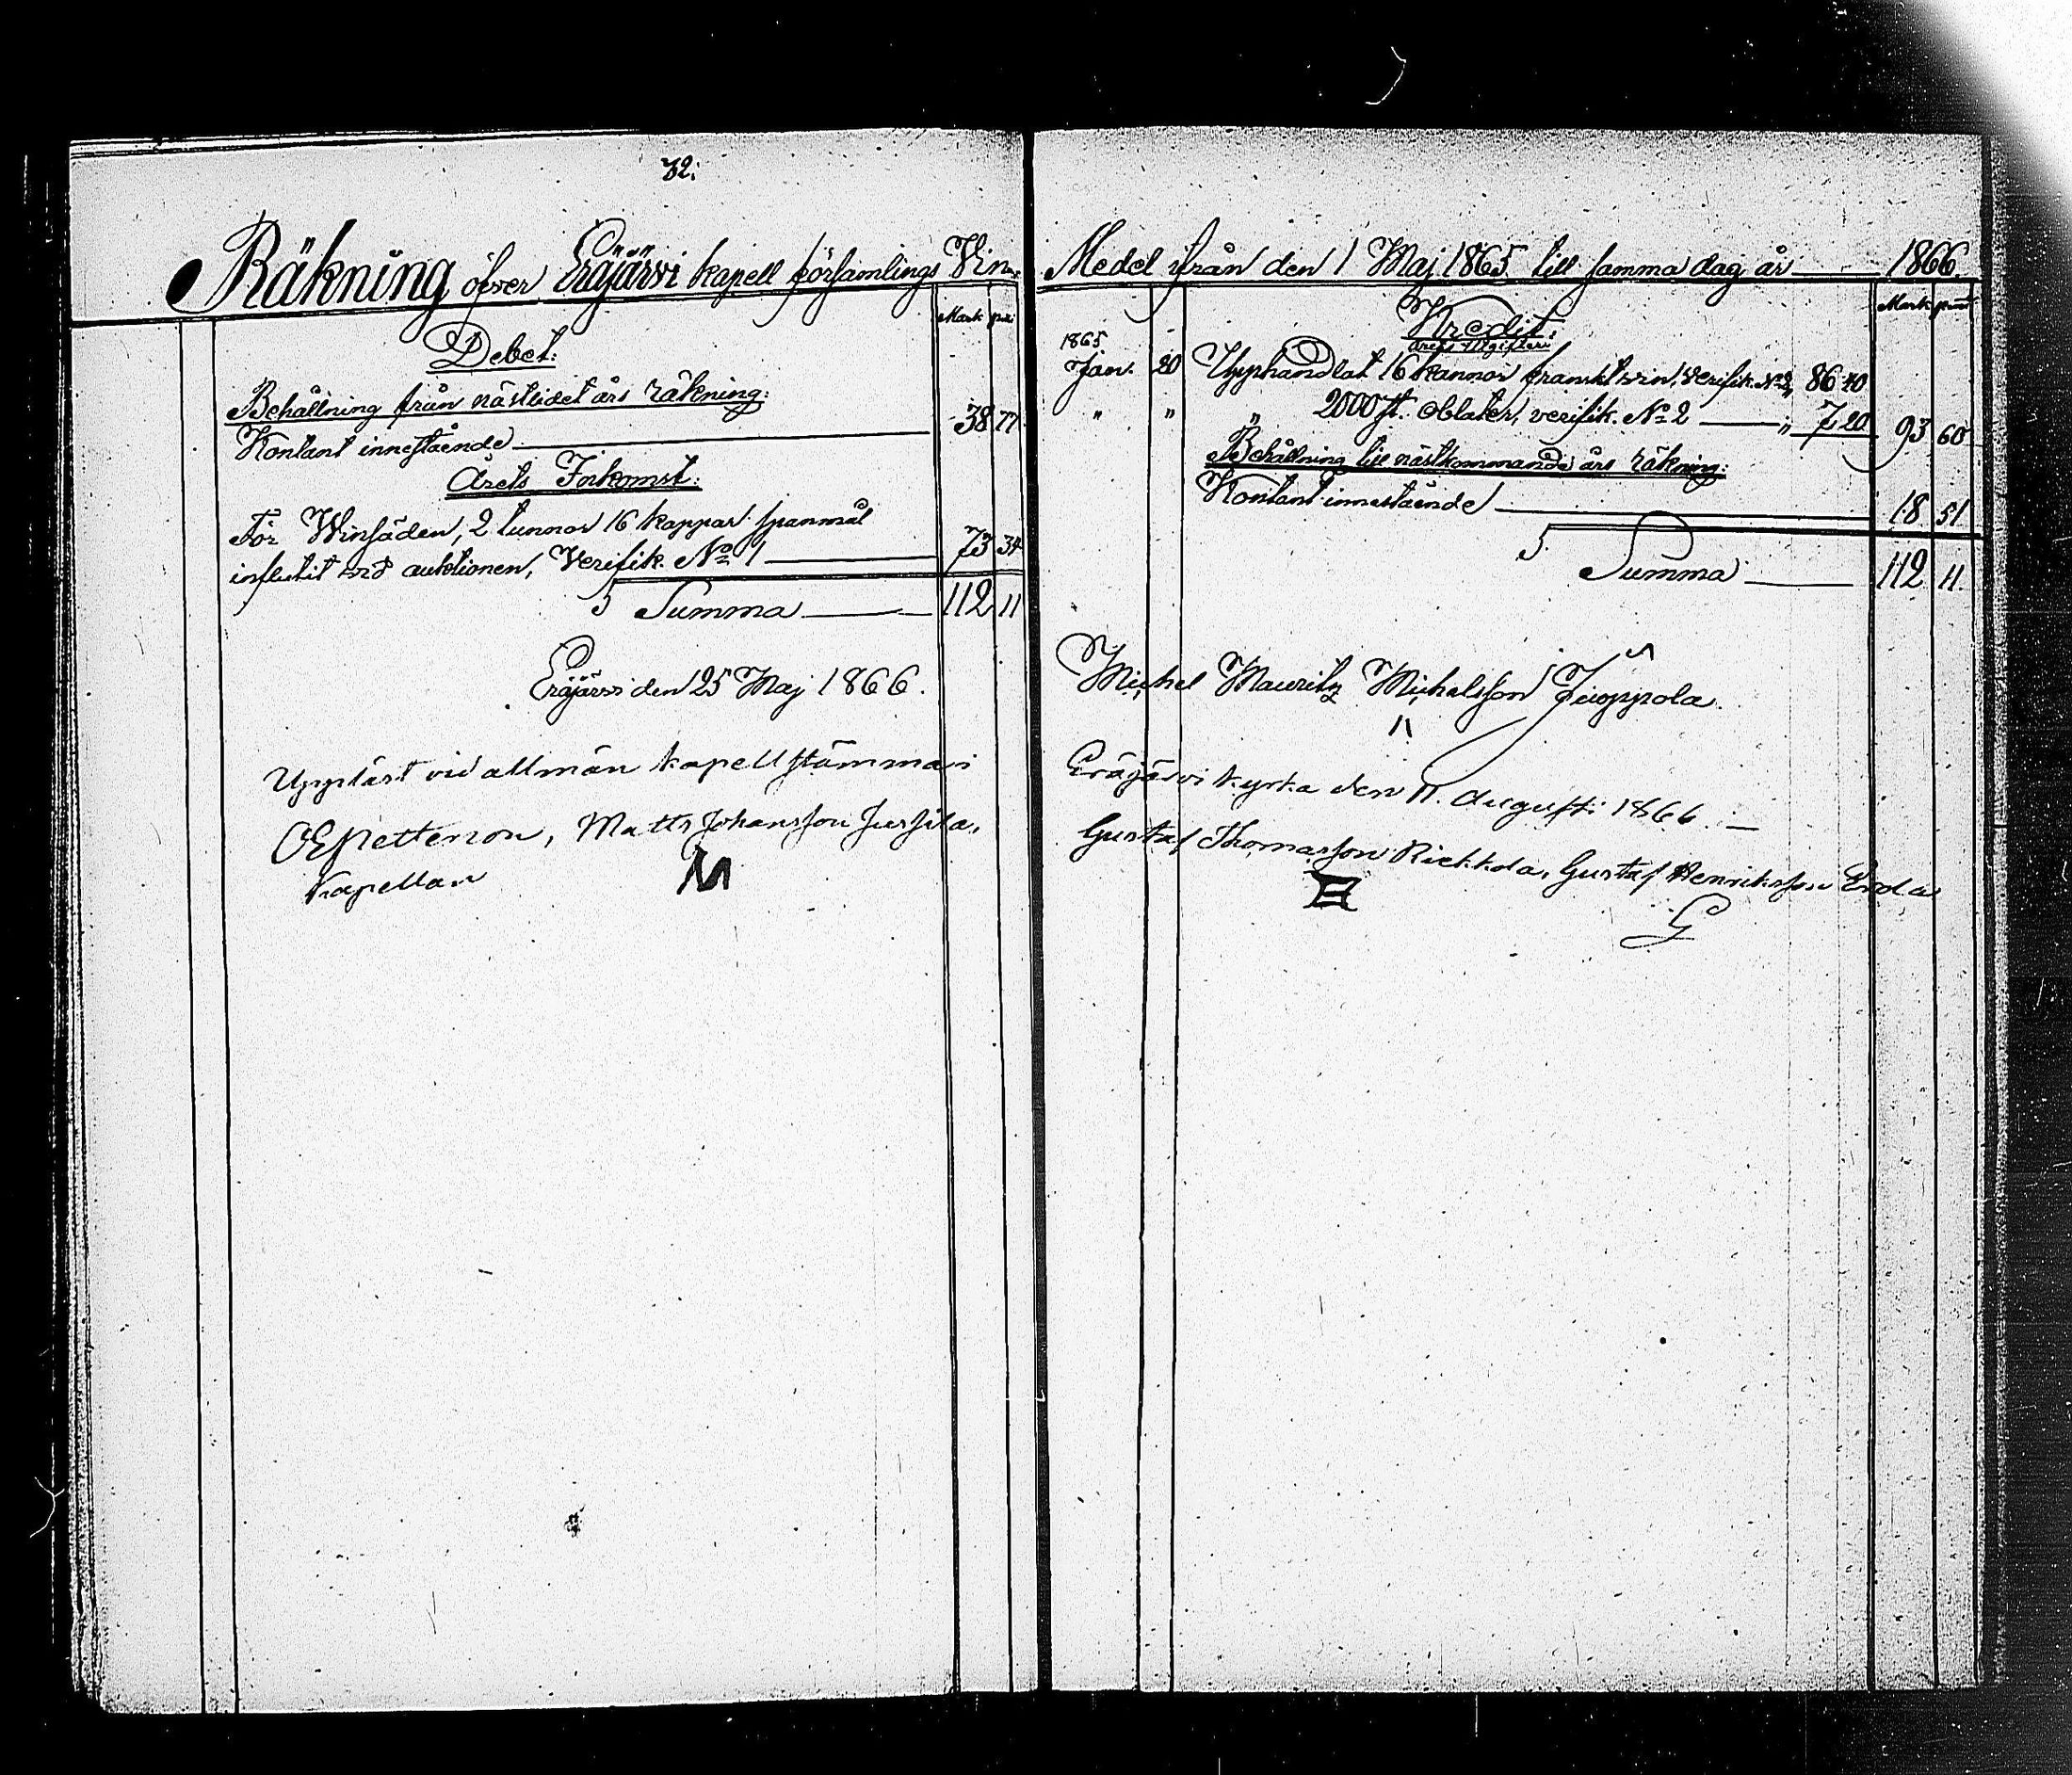 72.
Räkning öfver Eräjärvi kapell församlings Vin-
Mark pni
Debet:
Behållning från nästledet års räkning:
Kontant innestående 38 77
Årets Inkomst:
För Winsäden, 2 tunnor 16 kappar spanmål
influtit vid auktionen, Verifik. No 1 73 34
Summa 112 11
Eräjärvi den 25 Maj 1866.
Uppläst vid allmän kapellstämma i
OE Petterson, Matts Johansson Jussila,
Kapellan
Medel ifrån den 1 Maj 1865 till samma dag år 1866.
Mark
Kredit:
Årets Utgifter:
1865
Jan. 20 Upphandlat 16 kannor franskt vin, Verifik. No 2, 86 40
" " " 2000 st. Oblater, verifik. No 2 " 7 20 93 60
Behållning till nästkommande års räkning:
Kontant innestående 18 51
Summa 112 11.
Michel Mauritz Michelsson Juoppola.
Eräjärvi kyrka den 11. Augusti 1866.
Gustaf Thomasson Riekkola, Gustaf Henriksson Erola
G